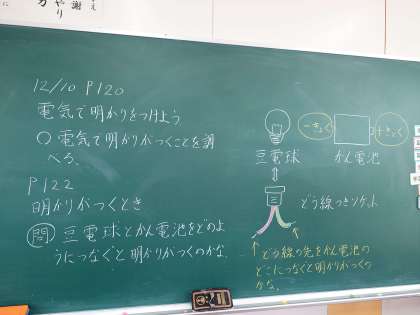 12/10 P120
電気で明かりをつけよう
○電気で明かりがつくことを調
べる。
P122
明かりがつくとき
問 豆電球とかん電池をどのよ
うにつなぐと明かりがつくのかな。
－きょく
＋きょく
豆電球
かん電池
どう線つきソケット
どう線の先をかん電池の
どこにつなぐと明かりがつくの
かな。